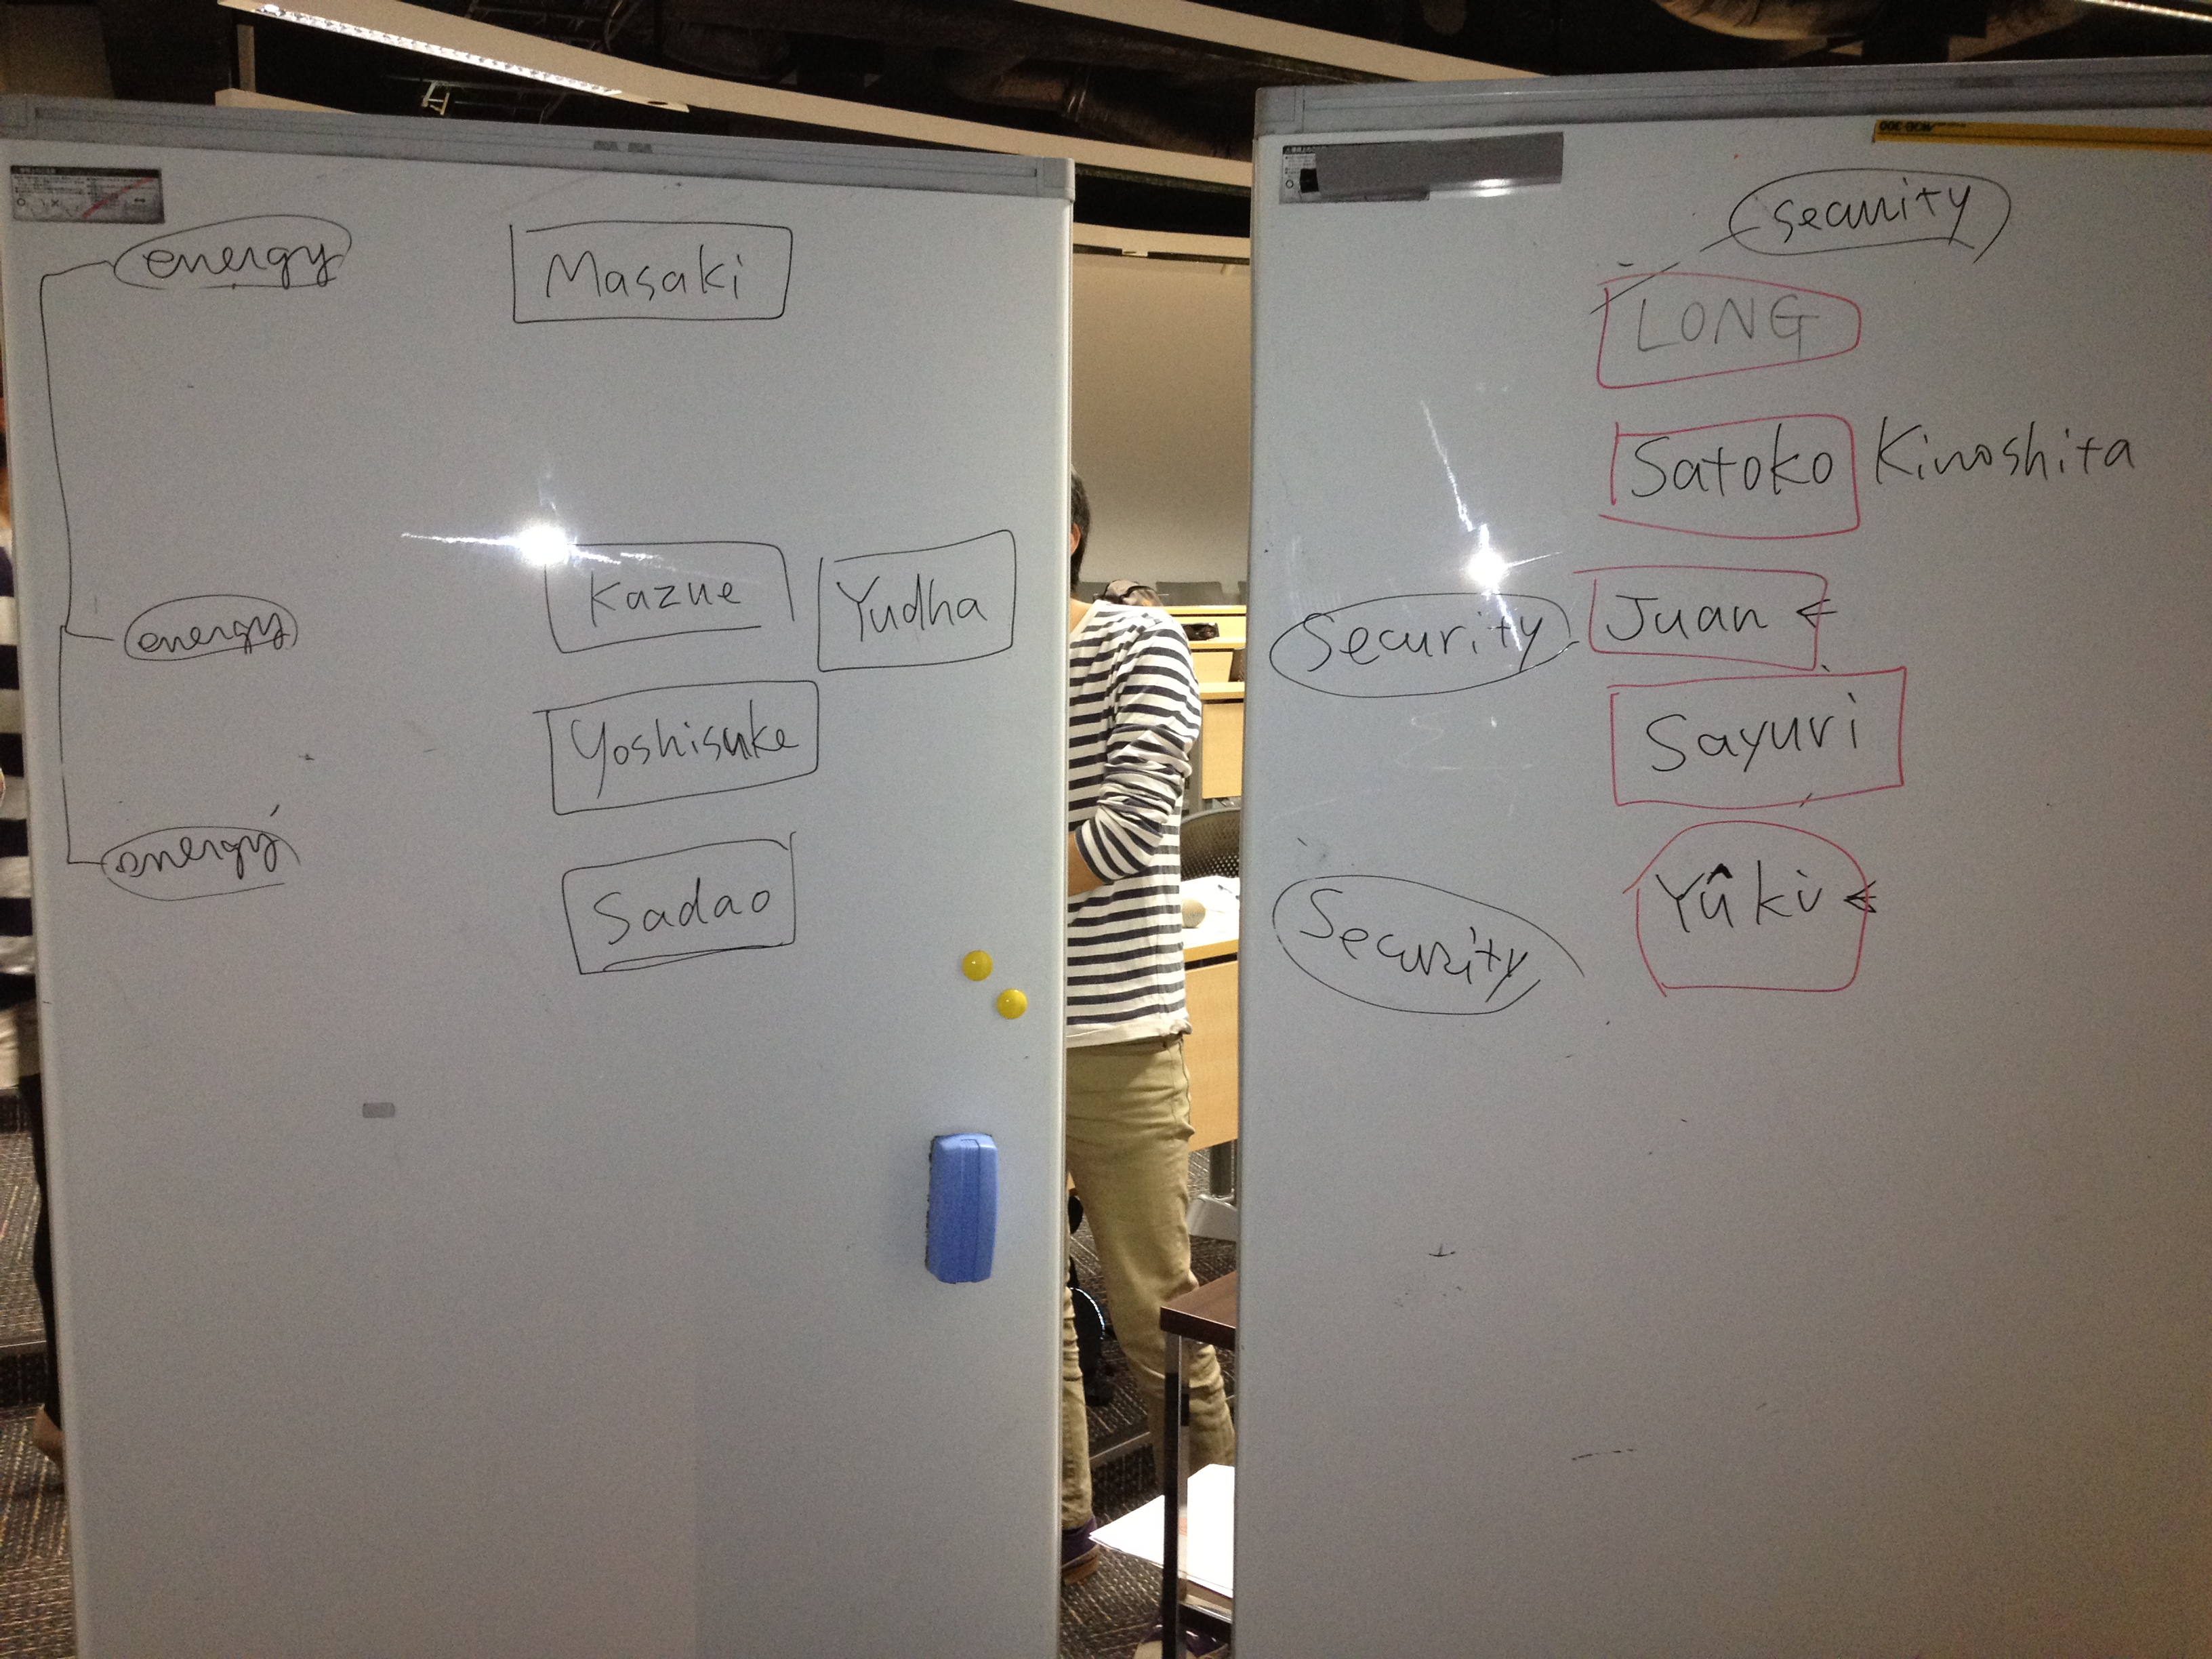 energy
Masaki
energy
Kazue
Yudha
Yoshisuke
energy
Sadao
security
LONG
Satoko Kinoshita
Security
Juan <
Sayuri
Security
Yûki <